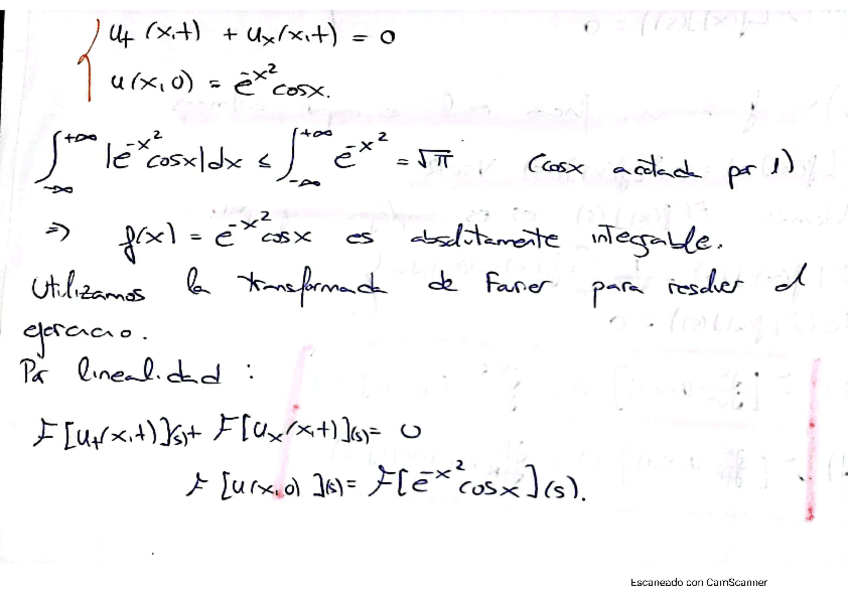 u_t (x,t) + u_x(x,t) = 0
u(x,0) = e^{-x^2} cosx.
∫_{-∞}^{+∞} |e^{-x^2} cosx|dx ≤ ∫_{-∞}^{+∞} e^{-x^2} = √π (cosx acotada por 1)
⇒ f(x) = e^{-x^2} cosx es absolutamente integrable.
Utilizamos la transformada de Fourier para resolver el
ejercicio.
Por linealidad :
F[u_t(x,t)](s)+ F[u_x(x,t)](s)= 0
F[u(x,0)](s)= F[e^{-x^2} cosx](s).
Escaneado con CamScanner